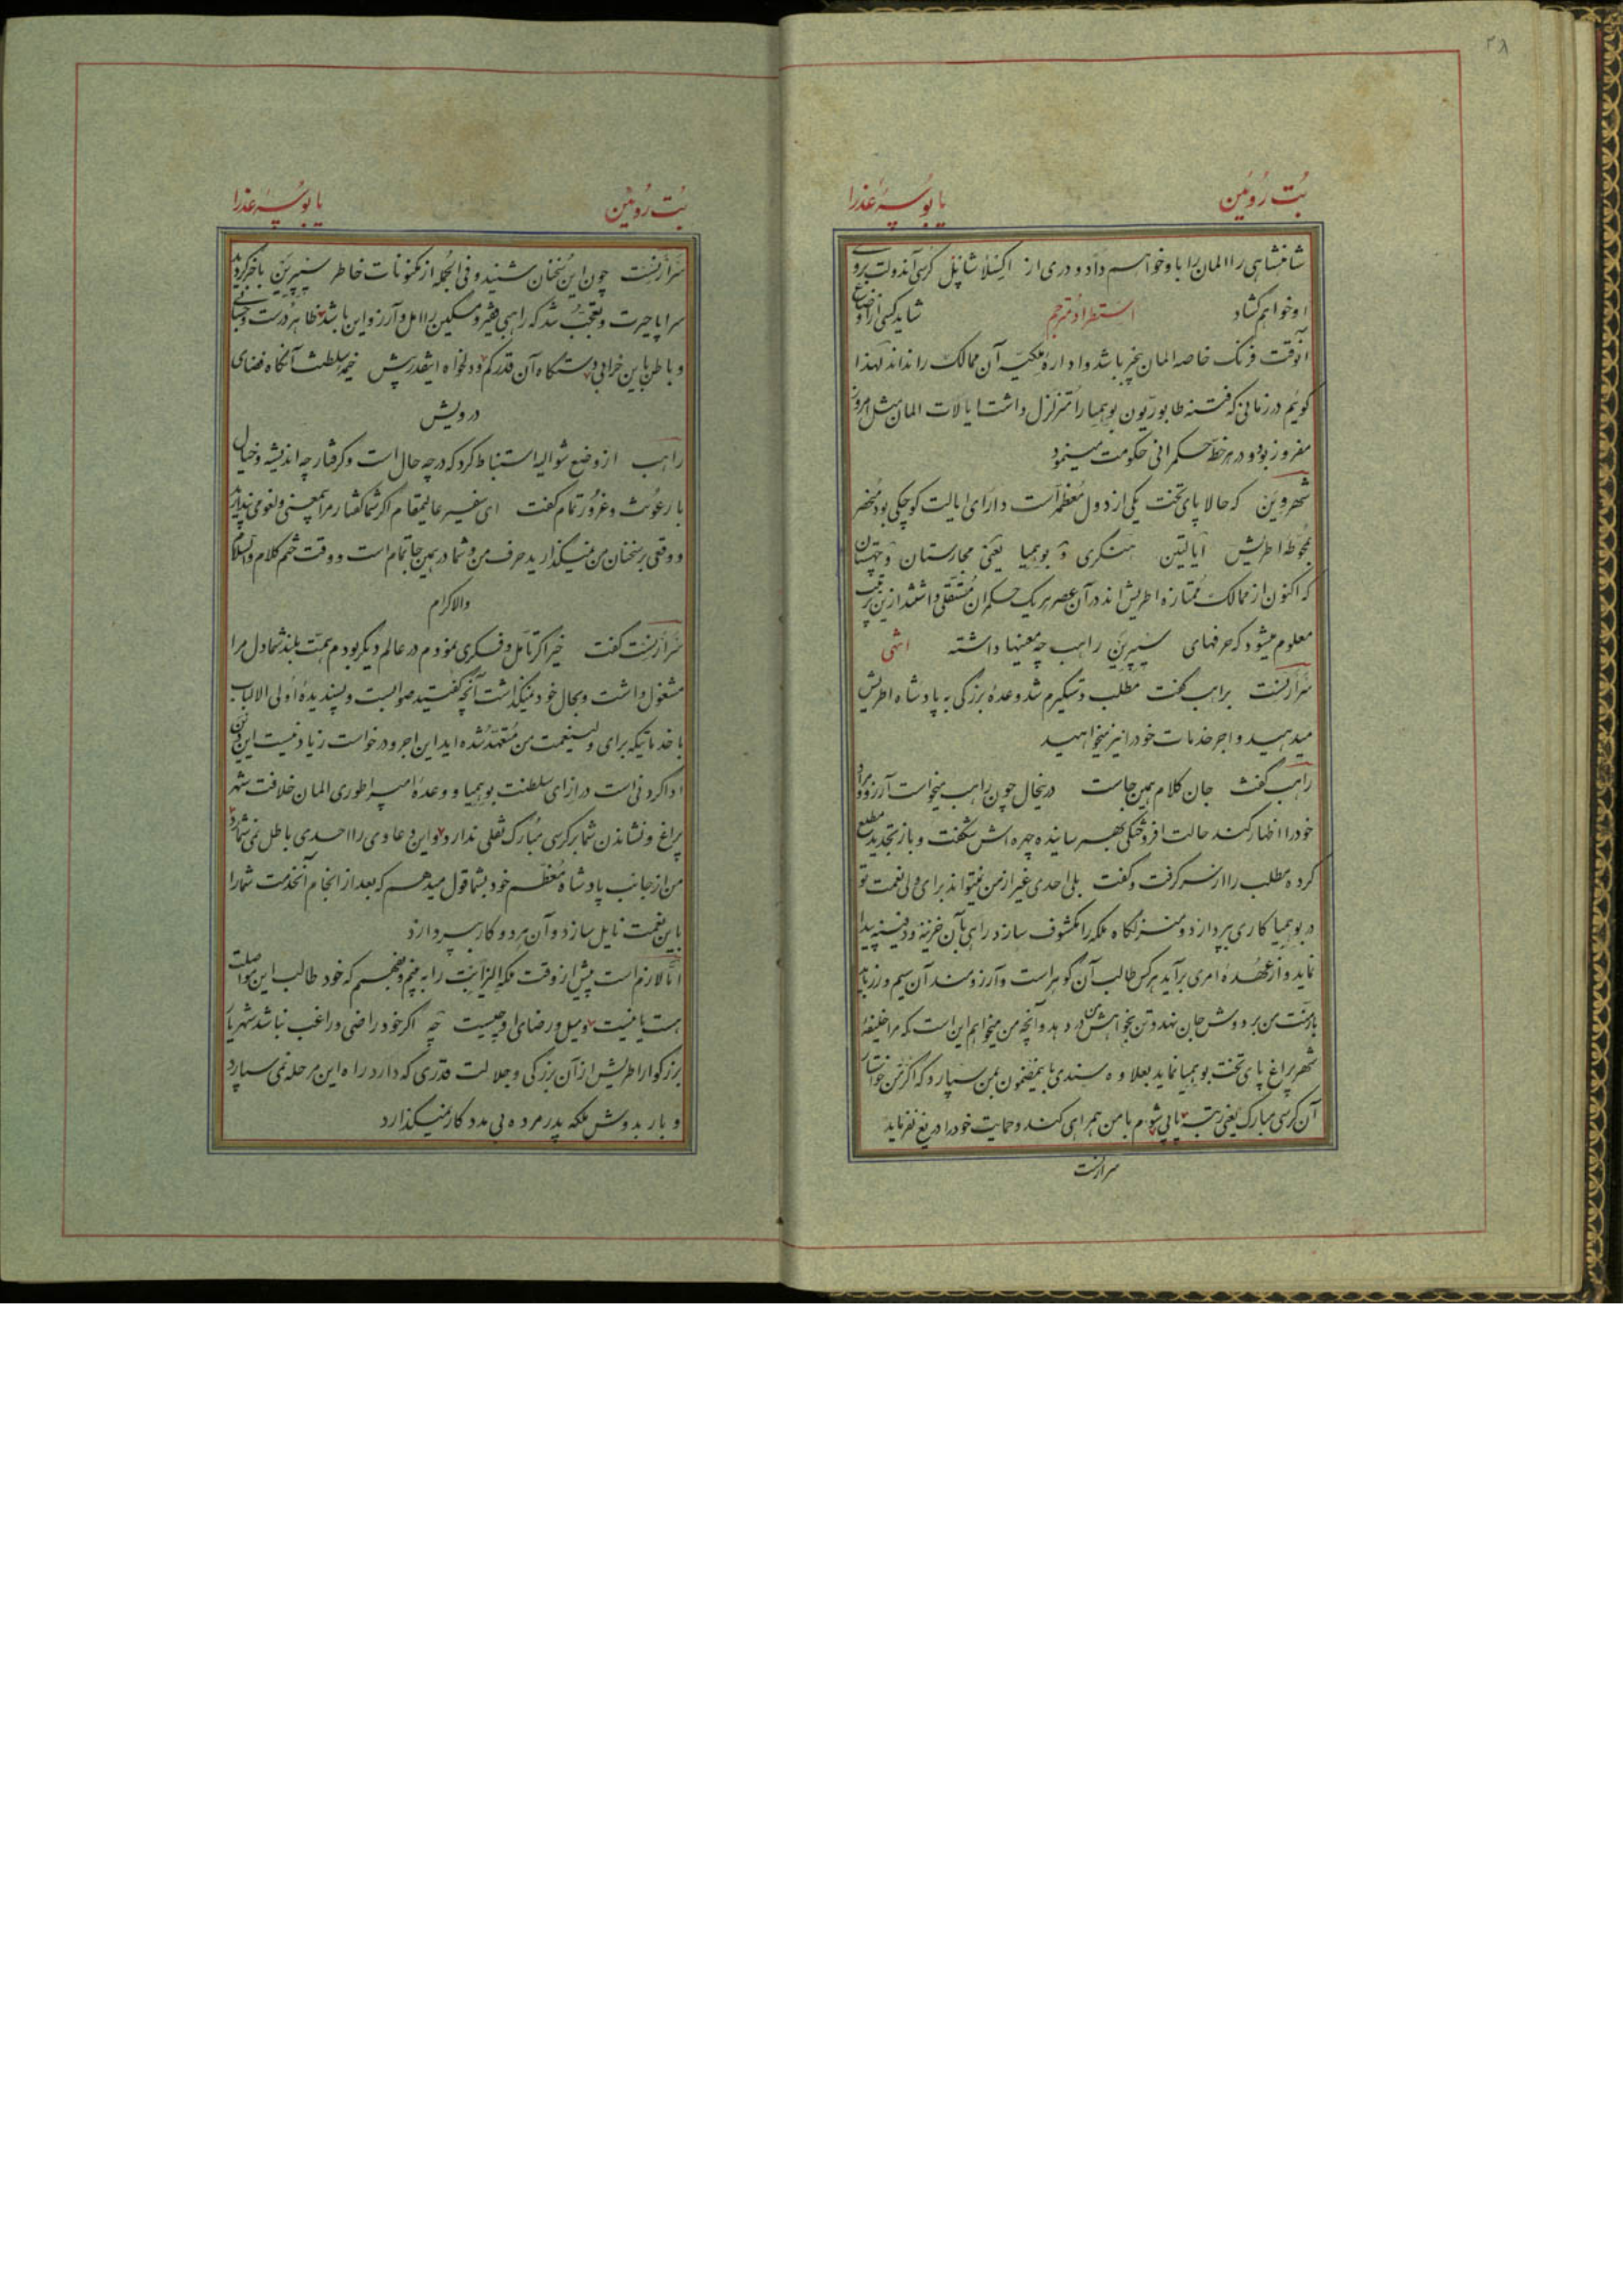 ۳۸
بُت رُوئین یا بُوسهٔ عذرا
شاهنشاهی را المان را باو خواهم داد و دری از اکسلا شاپل کرسی آندولت بروی
او خواهم کشاد استطراد مترجم شاید کسی از اوضاع
آنوقت فرنک خاصه المان بیخبر باشد و اداره ملکیّه آن ممالک را نداند لهذا
کوئیم در زمانی که فتنه طابوریّون بوهیما را متزلزل داشت ایالات المان مثل امروز
مفروز بود و در هر خطّه حکمرانی حکومت مینمود
شهر وین که حالا پای تخت یکی از دول مُعظّم است دارای ایالت کوچکی بود مُنحصر
بمُحوّطه اطریش ایالتین هنکری و بوهیما یعنی مجارستان و چهستان
که اکنون از ممالک مُمتازه اطریش اند در آن عصر هر یک حکمران مُستقلی داشتند ازین ترتیب
معلوم میشود که حرفهای سیپرین راهب چه معنیها داشته انتهی
سَرارنست براهب گفت مطلب دستکیرم شد وعدهٔ بزرکی به پادشاه اطریش
میدهید و اجر خدمات خود را نیز میخواهید
راهب گفت جان کلام همین جاست درینحال چون راهب میخواست آرزو و مراد
خود را اظهار کند حالت افروختکی بهم رسانیده چهره اش شکفت و باز تجدید مطلع
کرده مطلب را از سر کرفت و کفت بلی احدی غیر از من نمیتواند برای ولی نعمت تو
در بوهیما کاری بپردازد و منزلکاه ملکه را مکشوف سازد راهی بآن خزینه و دفینه پیدا
نماید و از عُهده امری برآید هر کس طالب آن کوهر است و آرزومند آن سیم و زر باید
بار منّت من بر دوش جان نهد و تن بخواهش من در دهد و آنچه من میخواهم این است که مرا خلیفهٔ
شهر پراغ پای تخت بوهیما نماید بعلاوه سندی باینمضمون بمن سپارد که اکر من خواستار
آن کرسی مبارک یعنی رتبهٔ پاپی شوم با من همراهی کند و حمایت خود را دریغ نفرماید
سرارنست
بُت رُوئین یا بُوسهٔ عذرا
سَرارنست چون این سُخنان شنید و فی الجُمله از مکنونات خاطر سیپرین باخبر کردید
سراپا حیرت و تعجّب شد که راهبی فقیر و مسکین را امل و آرزو این باشد ظاهر درست و حسابی
و باطن باین خرابی دستکاه آن قدر کم و دلخواه اینقدر بیش خیمهٔ سلطنت آنکاه فضای
درویش
راهب از وضع شوالیه استنباط کرد که در چه حال است و کرفتار چه اندیشه و خیال
با رعُونت و غرُور تمام گفت ای سفیر عالیمقام اکر شما کفتار مرا همچنین و لغو می پندارید
و وقعی بر سخنان من نمیکذارید حرف من و شما در همین جا تمام است و وقت ختم کلام والسّلام
والاکرام
سَرارنست گفت خیر اکر تأمّل و فکری نمودم در عالم دیکر بودم همّت بلند شما دل مرا
مشغول داشت و بحال خود نمیکذاشت آنچه گفتید صوابست و پسندیدهٔ اُولی الالباب
با خدماتیکه برای ولینعمت من مُتعهّد شده اید این اجر و درخواست زیاد نیست این دین
ادا کردنی است در ازای سلطنت بوهیما و وعدهٔ امپراطوری المان خلافت شهر
پراغ و نشاندن شما بر کرسی مُبارک ثقلی ندارد و این دعاوی را احدی باطل نمی شمارد
من از جانب پادشاه مُعظّم خود بشما قول میدهم که بعد از انجام آنخدمت شما را
باین نعمت نایل سازد و آن هر دو کار بپردازد
امّا لازم است پیش از وقت ملکه الیزابت را به بینم و بفهمم که خود طالب این مواصلت
هست یا نیست و میل و رضای او چیست چه اکر خود راضی و راغب نباشد شهریار
بزرکوار اطریش از آن بزرکی و جلالت قدری که دارد راه این مرحله نمی سپارد
و بار بدوش ملکه پدر مرده بی مدد کار نمیکذارد